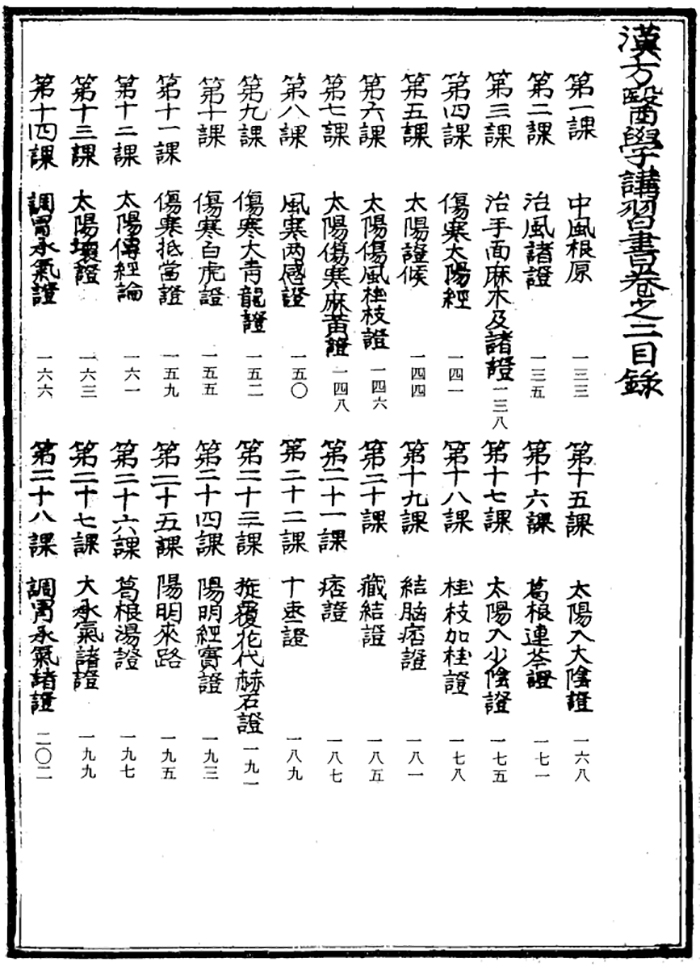 漢方醫學講習書卷之二目錄
第一課 中風根原 一三三
第二課 治風諸證 一三五
第三課 治手面麻木及諸證 一三八
第四課 傷寒太陽經 一四一
第五課 太陽證候 一四四
第六課 太陽傷風桂枝證 一四六
第七課 太陽傷寒麻黃證 一四八
第八課 風寒两感證 一五〇
第九課 傷寒大青龍證 一五二
第十課 傷寒白虎證 一五五
第十一課 傷寒抵當證 一五九
第十二課 太陽傳經論 一六一
第十三課 太陽壞證 一六三
第十四課 調胃承氣證 一六六
第十五課 太陽入大陰證 一六八
第十六課 葛根連芩證 一七一
第十七課 太陽入少陰證 一七五
第十八課 桂枝加桂證 一七八
第十九課 結胸痞證 一八一
第二十課 藏結證 一八五
第二十一課 痞證 一八七
第二十二課 十棗證 一八九
第二十三課 旋覆花代赫石證 一九一
第二十四課 陽明經實證 一九三
第二十五課 陽明來路 一九五
第二十六課 葛根湯證 一九七
第二十七課 大承氣諸證 一九九
第二十八課 調胃承氣諸證 二〇二